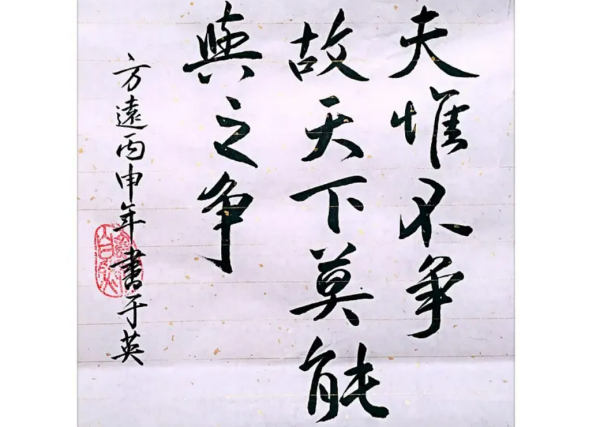 夫惟不争
故天下莫能
與之争
方遠丙申年書于英